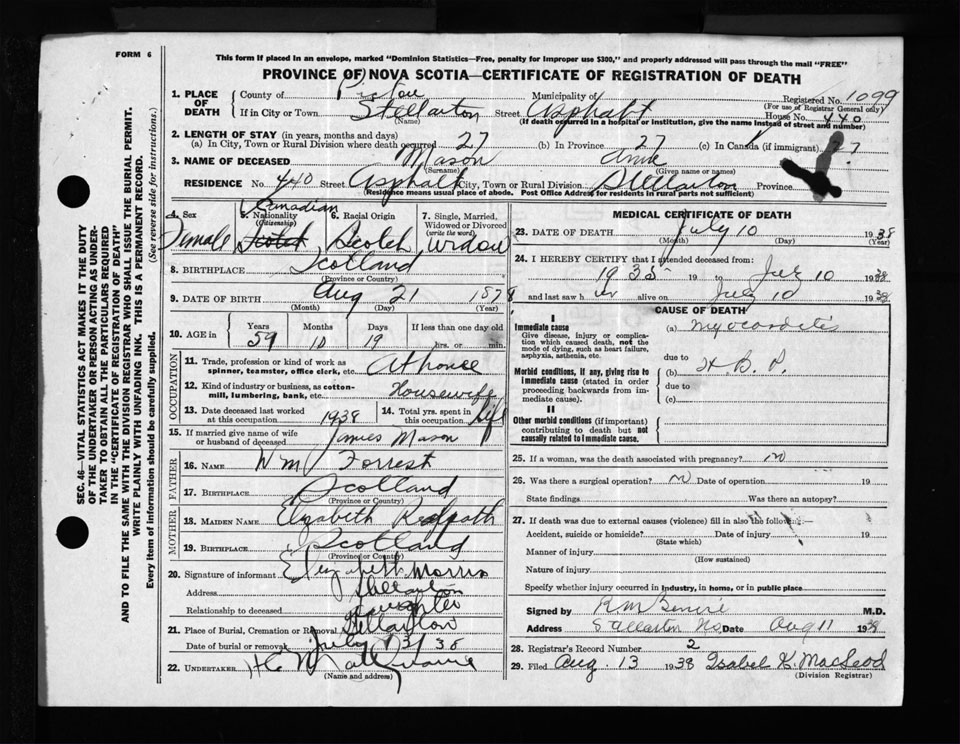 FORM 6
This form if placed in an envelope, marked "Dominion Statistics—Free, penalty for improper use $300," and properly addressed will pass through the mail "FREE"
PROVINCE OF NOVA SCOTIA—CERTIFICATE OF REGISTRATION OF DEATH
SEC. 46—VITAL STATISTICS ACT MAKES IT THE DUTY
OF THE UNDERTAKER OR PERSON ACTING AS UNDER-
TAKER TO OBTAIN ALL THE PARTICULARS REQUIRED
IN THE "CERTIFICATE OF REGISTRATION OF DEATH"
AND TO FILE THE SAME WITH THE DIVISION REGISTRAR WHO SHALL ISSUE THE BURIAL PERMIT.
WRITE PLAINLY WITH UNFADING INK. THIS IS A PERMANENT RECORD.
Every item of information should be carefully supplied. (See reverse side for instructions.)
1. PLACE OF DEATH County of Pictou Municipality of Registered No. 1099
(For use of Registrar General only)
If in City or Town Stellarton Street Asphalt House No. 440
(Name) (If death occurred in a hospital or institution, give the name instead of street and number)
2. LENGTH OF STAY (in years, months and days)
(a) In City, Town or Rural Division where death occurred 27 (b) In Province 27 (c) In Canada (if immigrant) 27
3. NAME OF DECEASED Mason Annie
(Surname) (Given name or names)
RESIDENCE No. 440 Street Asphalt City, Town or Rural Division Stellarton Province
(Residence means usual place of abode. Post Office Address for residents in rural parts not sufficient)
4. Sex Female
5. Nationality (Citizenship) Canadian Scotch
6. Racial Origin Scotch
7. Single, Married, Widowed or Divorced (write the word) Widow
8. BIRTHPLACE Scotland
(Province or Country)
9. DATE OF BIRTH Aug 21 1878
(Month) (Day) (Year)
10. AGE in Years 59 Months 10 Days 19 If less than one day old hrs. or min.
OCCUPATION
11. Trade, profession or kind of work as spinner, teamster, office clerk, etc. At house
12. Kind of industry or business, as cotton-mill, lumbering, bank, etc. Housewife
13. Date deceased last worked at this occupation 1938 14. Total yrs. spent in this occupation life
15. If married give name of wife or husband of deceased James Mason
FATHER
16. NAME Wm Forrest
17. BIRTHPLACE Scotland
(Province or Country)
MOTHER
18. MAIDEN NAME Elizabeth Redpath
19. BIRTHPLACE Scotland
(Province or Country)
20. Signature of informant Elizabeth Morris
Address Stellarton
Relationship to deceased daughter
21. Place of Burial, Cremation or Removal Stellarton
Date of burial or removal July 13/38
22. UNDERTAKER
(Name and address)
MEDICAL CERTIFICATE OF DEATH
23. DATE OF DEATH July 10 1938
(Month) (Day) (Year)
24. I HEREBY CERTIFY that I attended deceased from:
1935 19 to July 10 1938
and last saw her alive on July 10 1938
CAUSE OF DEATH
I
Immediate cause
Give disease, injury or complication which caused death, not the mode of dying, such as heart failure, asphyxia, asthenia, etc.
(a) Myocarditis
due to
Morbid conditions, if any, giving rise to immediate cause (stated in order proceeding backwards from immediate cause).
(b) H.B.P.
due to
(c)
II
Other morbid conditions (if important) contributing to death but not causally related to immediate cause.
25. If a woman, was the death associated with pregnancy? no
26. Was there a surgical operation? no Date of operation 19
State findings Was there an autopsy?
27. If death was due to external causes (violence) fill in also the following:—
Accident, suicide or homicide? Date of injury 19
(State which)
Manner of injury
(How sustained)
Nature of injury
Specify whether injury occurred in industry, in home, or in public place
Signed by M.D.
Address Stellarton NS Date Aug 11 1938
28. Registrar's Record Number 2
29. Filed Aug. 13 1938 Isabel K. MacLeod
(Division Registrar)